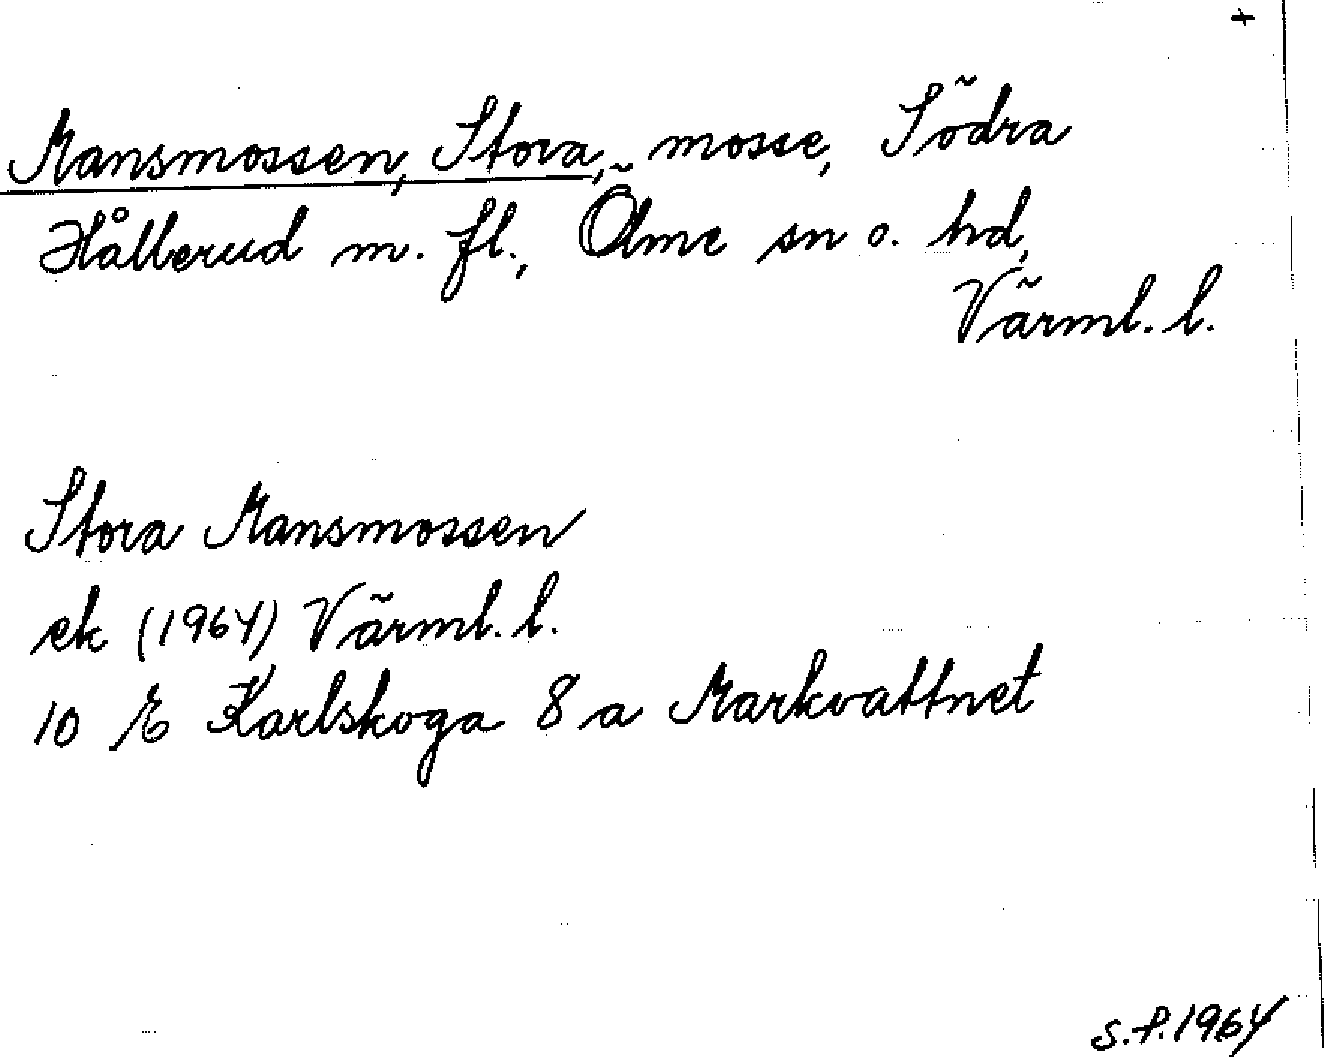 +
Mansmossen, Stora, mosse, Södra
Hållerud m. fl., Ölme sn o. hd,
Värml. l.
Stora Mansmossen
ek (1964) Värml. l.
10 E Karlskoga 8 a Markvattnet
S.P. 1964